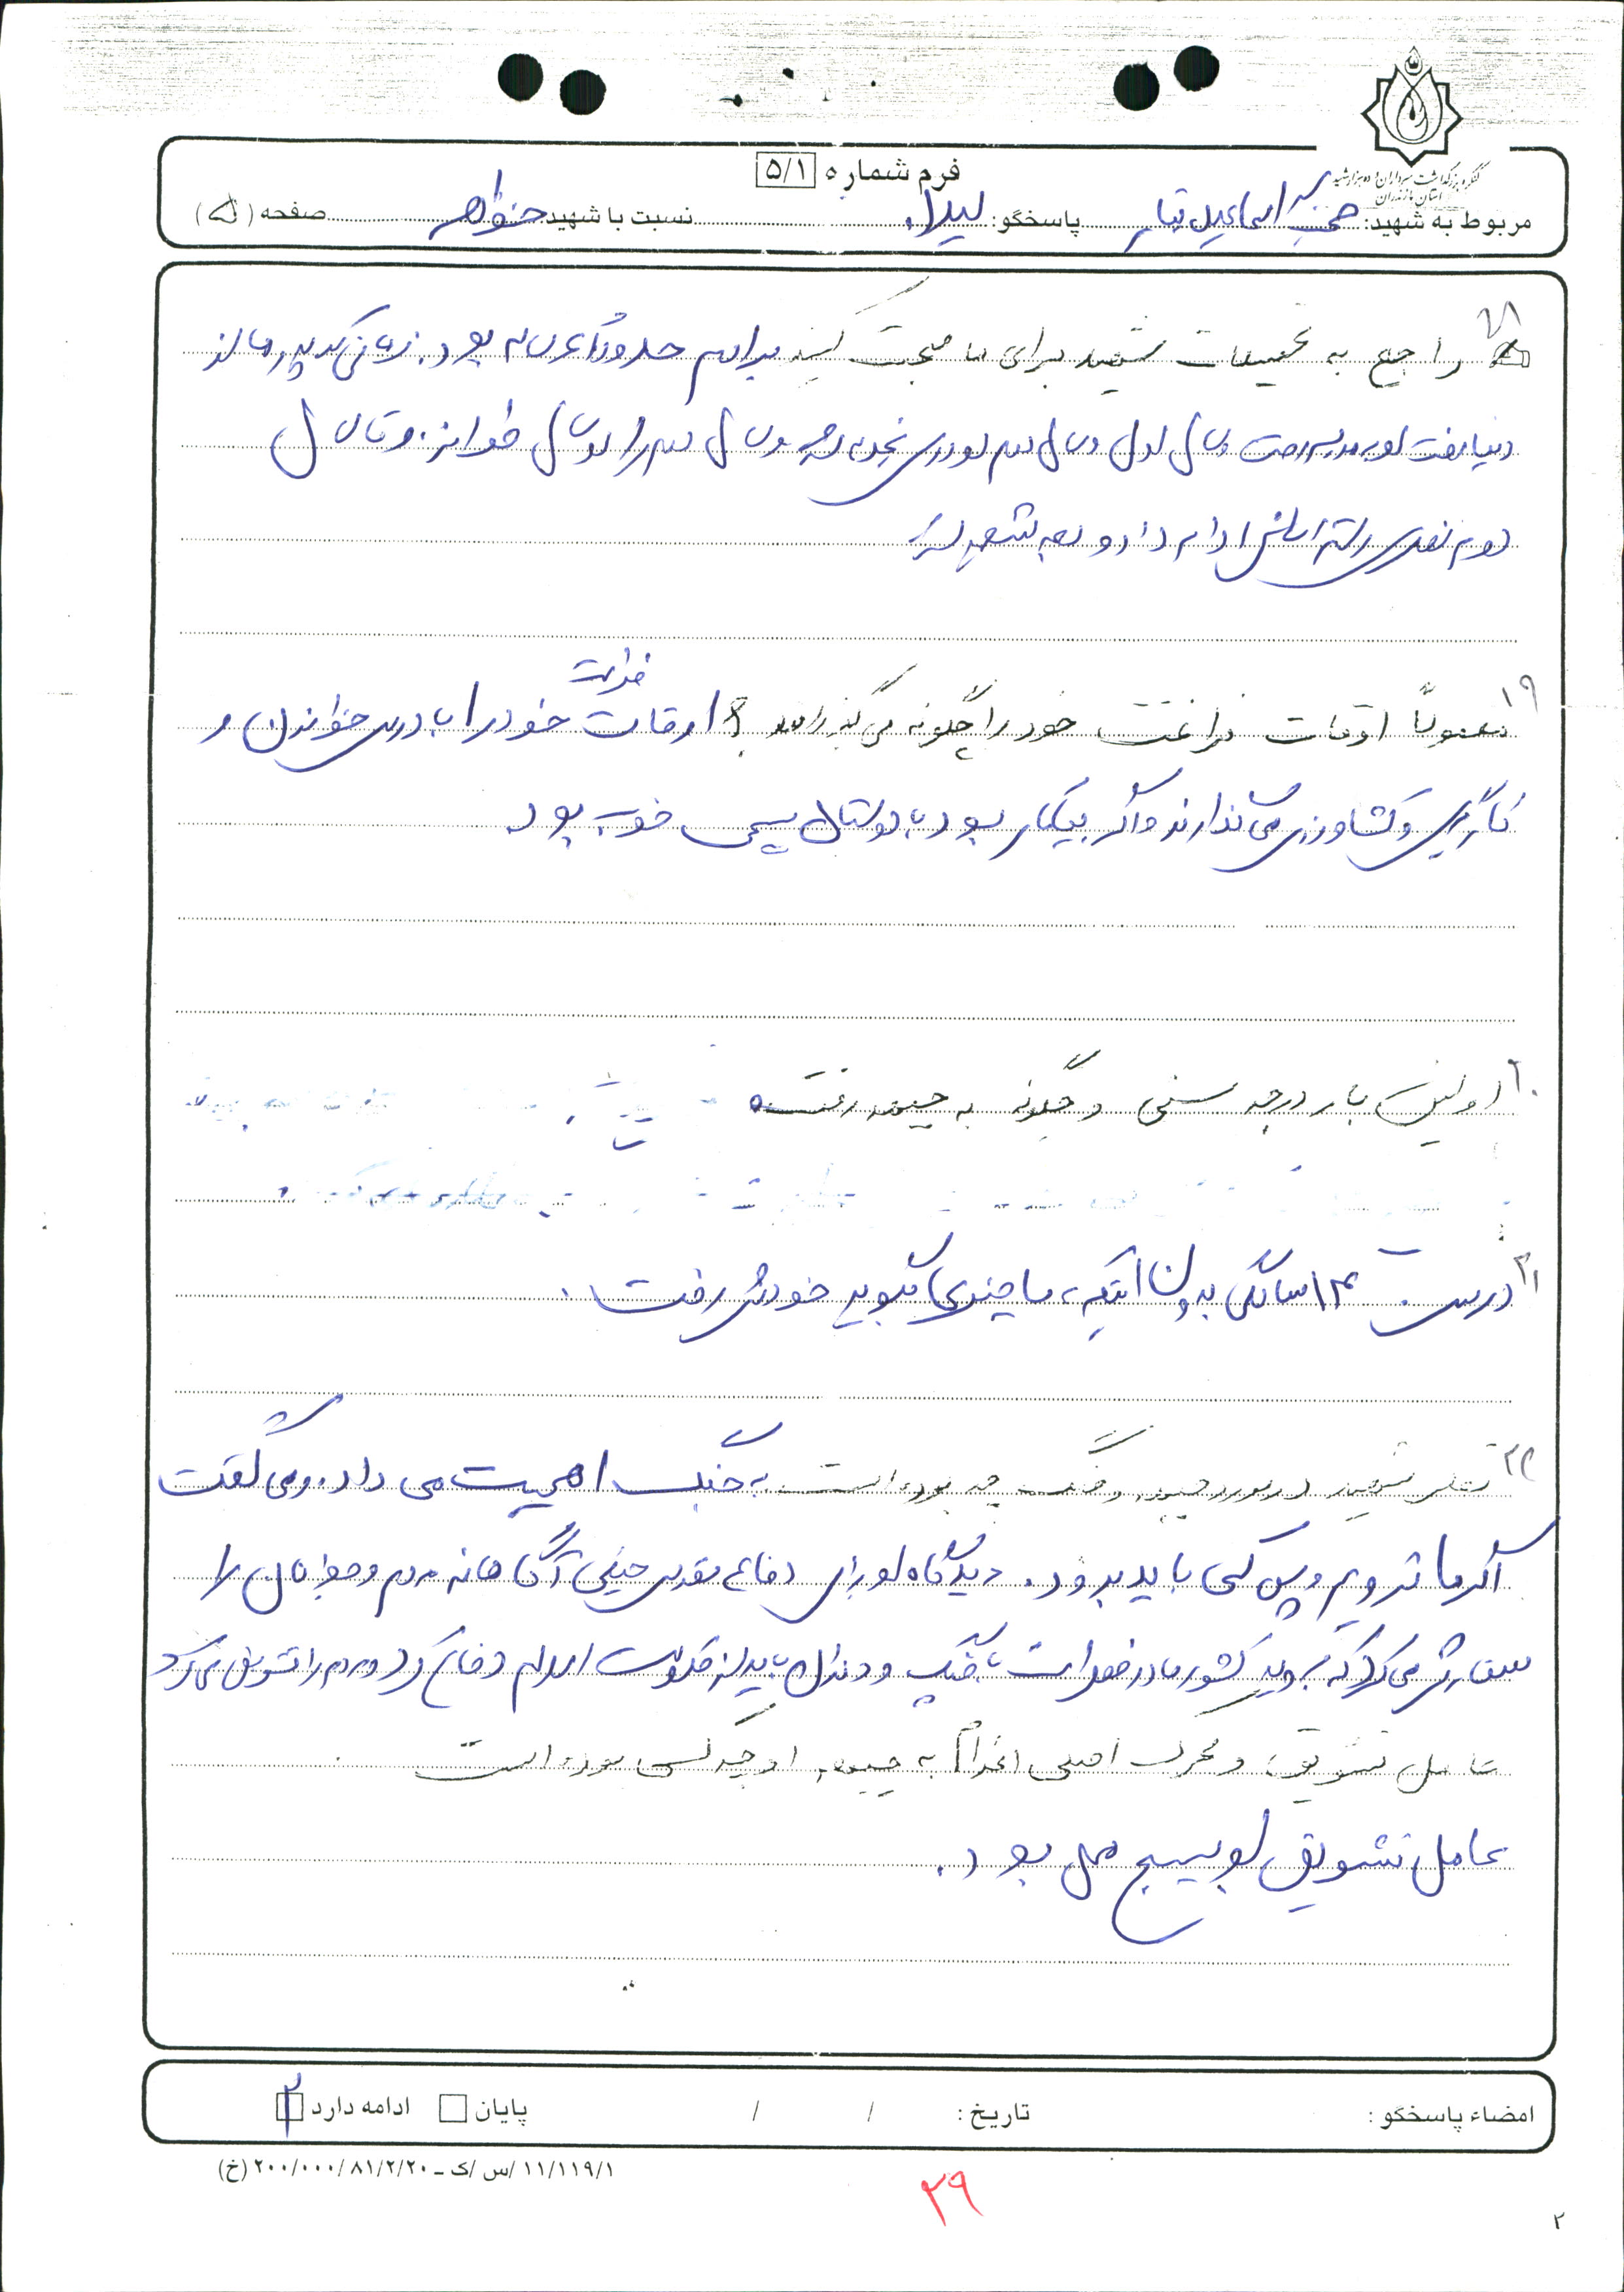 کنگره بزرگداشت سرداران و ده هزار شهید
استان مازندران
فرم شماره ۵/۱
مربوط به شهید: اسماعیل تبار پاسخگو: لیلا نسبت با شهید خواهر صفحه (۵)
راجع به تحصیلات شهید برای ما صحبت کنید برادرم حدوداً بود. زمانی که پدر ما از
دنیا رفت او به مدرسه سال اول و سال دوم را خواند. و تا سال
دوم ادامه داد و
۱۹ معمولاً اوقات فراغت خود را چگونه می گذراند؟ اوقات فراغت خود را با درس خواندن و
کارگری و کشاورزی می گذارند و اگر بیکار بود با دوستان بود.
۲۰ اولین بار در چه سنی و چگونه به جبهه رفت
۲۱ در سن ۱۳ سالگی بدون اینکه به ما چیزی بگوید خودش رفت.
۲۲ نظر شهید در مورد جبهه و جنگ چه بوده است. به جنگ اهمیت می داد. و می گفت
اگر ما نرویم پس کی باید برود. دیدگاه او برای دفاع مقدس خیلی آگاهانه مردم و جوانان را
سفارش می کرد که بروید کشور ما در خطر است با جنگ و باید از اسلام دفاع کرد و مردم را تشویق می کرد
عامل تشویق و محرک اصلی اعزام به جبهه او چه کسی بوده است
عامل تشویق او بسیج محل بود.
امضاء پاسخگو: تاریخ: / / پایان ادامه دارد
۱۱/۱۱۹/۱ /س /ک ـ ۲۰۰/۰۰۰/۸۱/۲/۲۰ (خ)
۲۹
۲